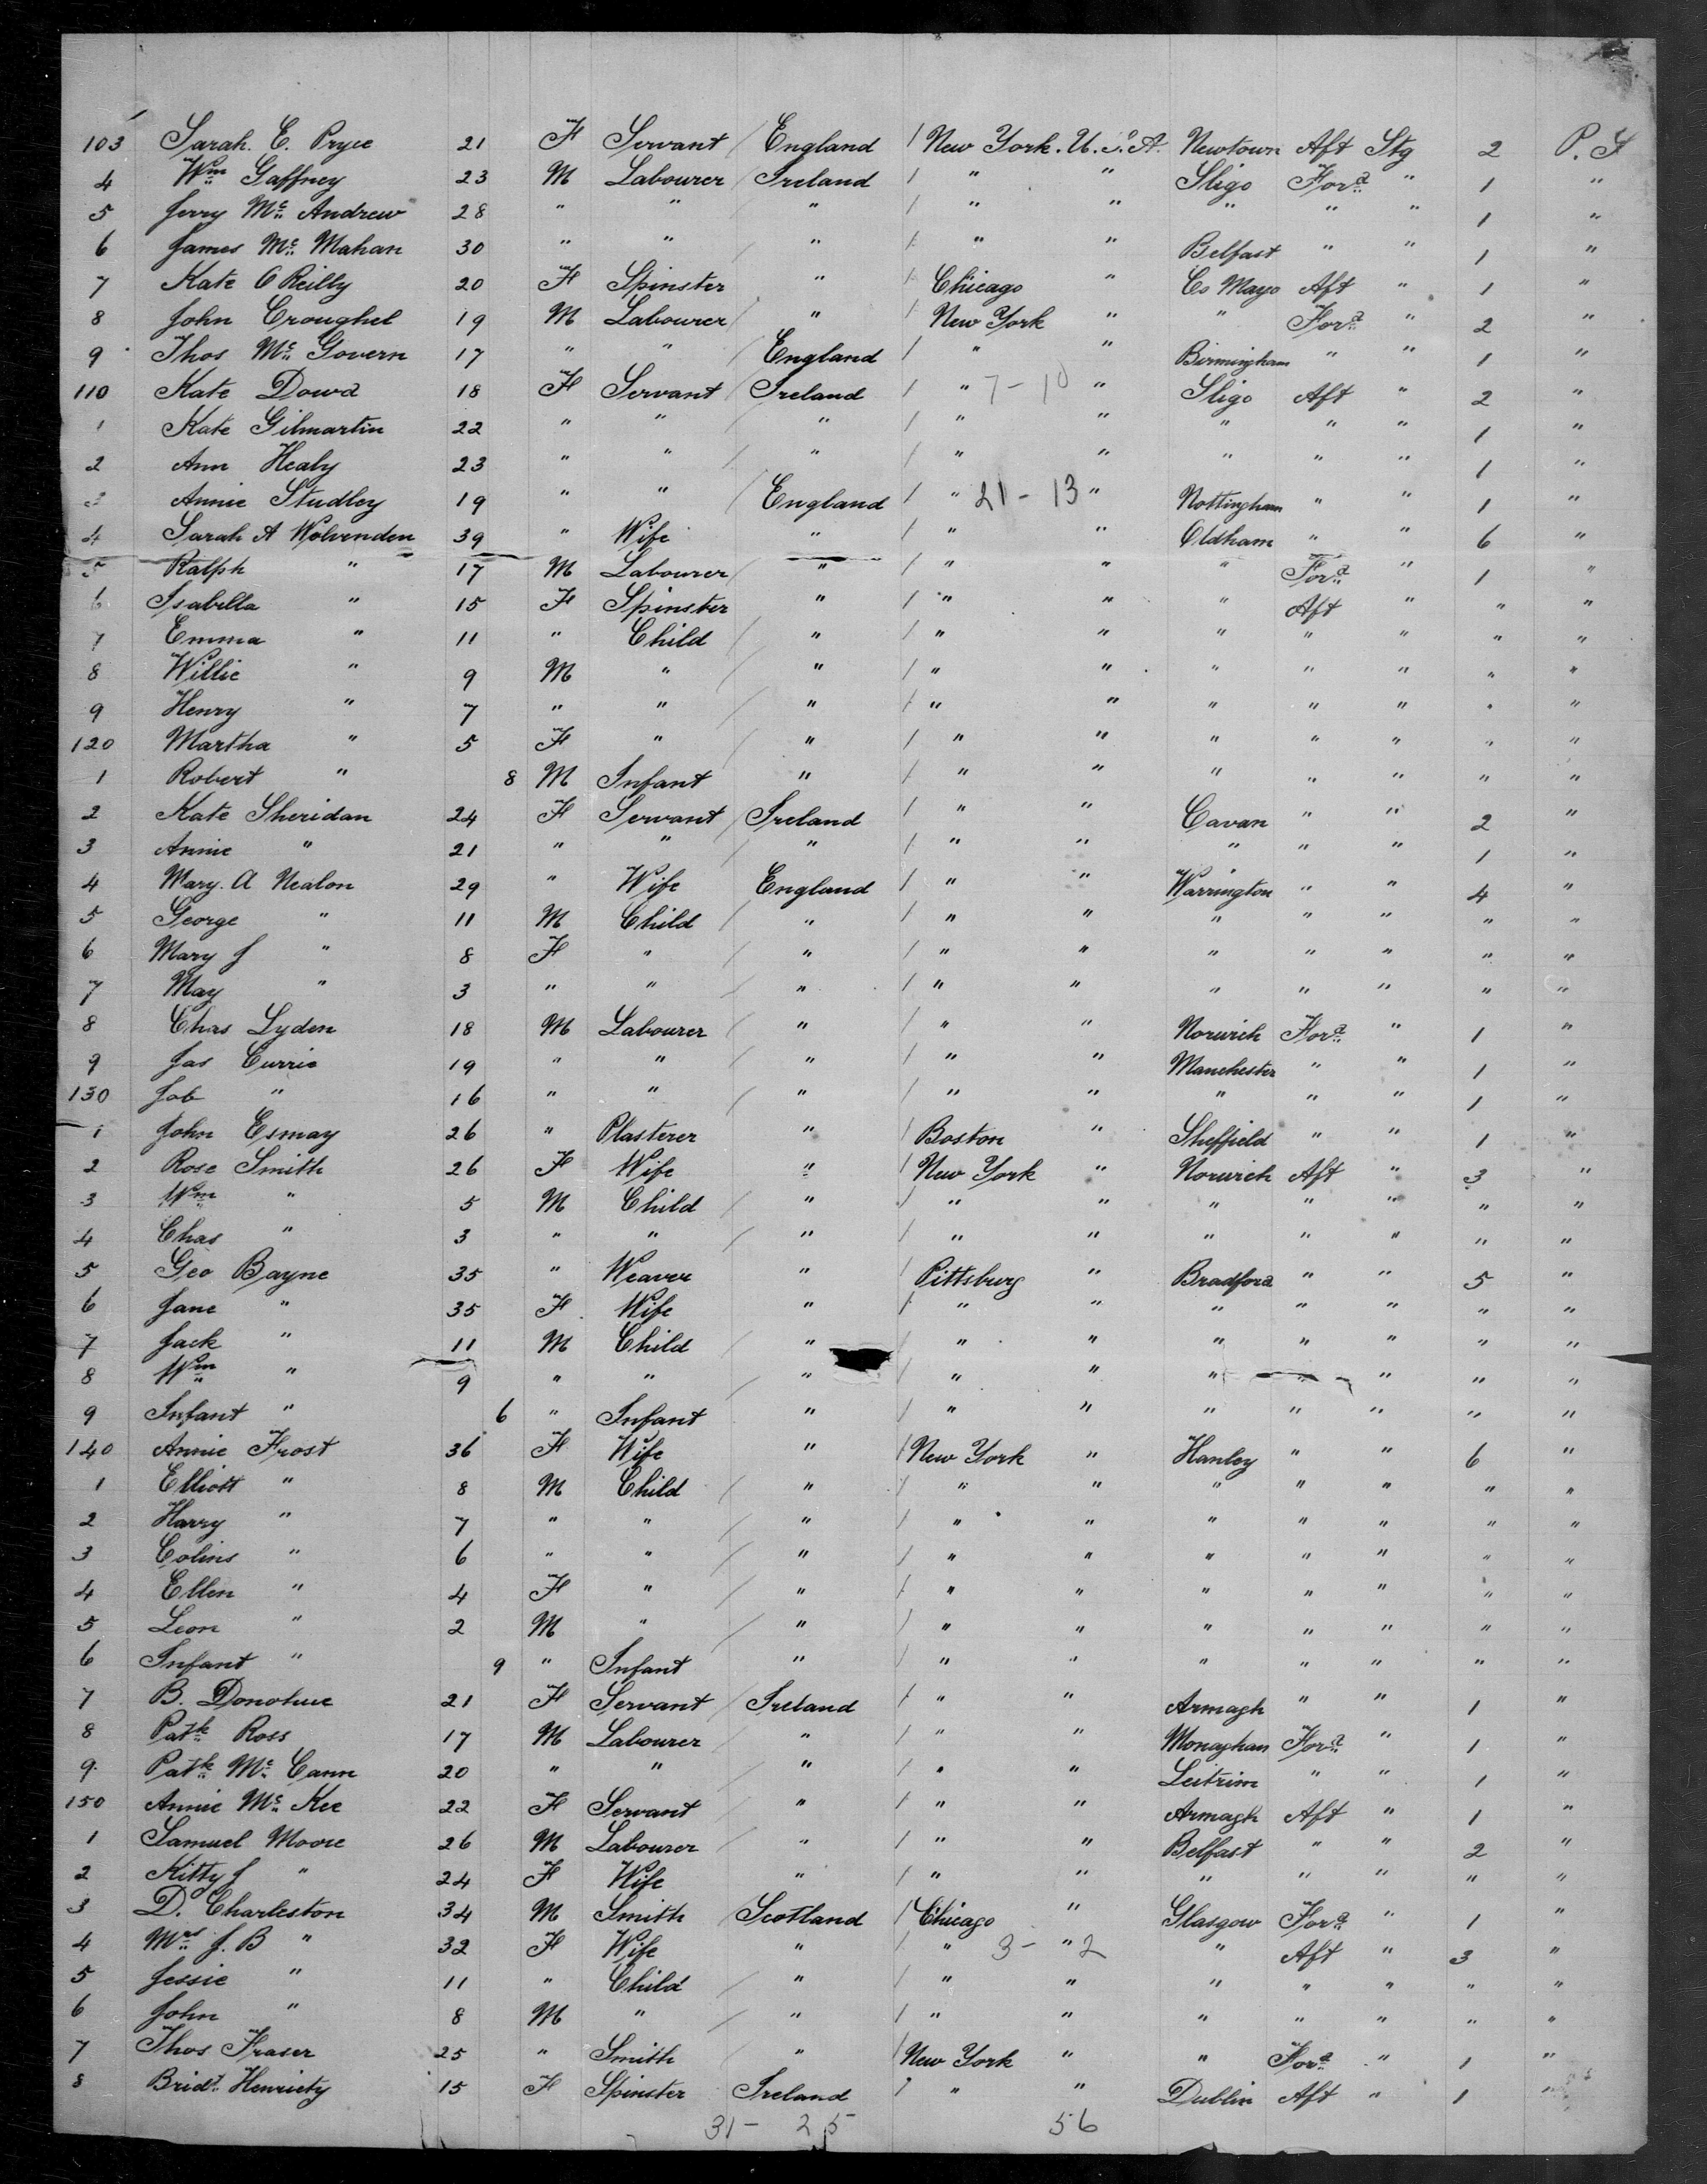 103 Sarah. E. Pryce 21 F Servant England / New York. U.S.A. Newtown Aft Stg 2 P.S
4 Wm Gaffney 23 M Labourer / Ireland / " " Sligo Ford " 1 "
5 Jerry Mc Andrew 28 " " " / " " " " " 1 "
6 James Mc Mahan 30 " " / " / " " Belfast " " 1 "
7 Kate O Reilly 20 F Spinster " / Chicago " Co Mayo Aft " 1 "
8 John Croughel 19 M Labourer / " / New York " " Ford " 2 "
9 Thos Mc Govern 17 " " England / " " Birmingham " " 1 "
110 Kate Dowd 18 F Servant / Ireland / " 7 - 10 " Sligo Aft " 2 "
1 Kate Gilmartin 22 " " / " / " " " " " 1 "
2 Ann Healy 23 " " / " / " " " " " 1 "
3 Annie Studley 19 " " / England / " 21 - 13 " Nottingham " " 1 "
4 Sarah A Wolvenden 39 " Wife " / " " Oldham " " 6 "
5 Ralph " 17 M Labourer / " / " " " Ford " 1 "
6 Isabella " 15 F Spinster " / " " " Aft " " "
7 Emma " 11 " Child / " / " " " " " " "
8 Willie " 9 M " / " / " " " " " " "
9 Henry " 7 " " / " / " " " " " " "
120 Martha " 5 F " / " / " " " " " " "
1 Robert " 8 M Infant " / " " " " " " "
2 Kate Sheridan 24 F Servant / Ireland / " " Cavan " " 2 "
3 Annie " 21 " " / " / " " " " " 1 "
4 Mary. A Nealon 29 " Wife England / " " Warrington " " 4 "
5 George " 11 M Child / " / " " " " " " "
6 Mary J " 8 F " / " / " " " " " " "
7 May " 3 " " / " / " " " " " " "
8 Chas Lyden 18 M Labourer / " / " " Norwich Ford " 1 "
9 Jas Currie 19 " " / " / " " Manchester " " 1 "
130 Job " 16 " " / " / " " " " " 1 "
1 John Esmay 26 " Plasterer " / Boston " Sheffield " " 1 "
2 Rose Smith 26 F Wife " / New York " Norwich Aft " 3 "
3 Wm " 5 M Child / " / " " " " " " "
4 Chas " 3 " " / " / " " " " " " "
5 Geo Bayne 35 " Weaver " / Pittsburg " Bradford " " 5 "
6 Jane " 35 F Wife " / " " " " " " "
7 Jack " 11 M Child / " / " " " " " " "
8 Wm " 9 " " / " / " " " " " " "
9 Infant " 6 " Infant " / " " " " " " "
140 Annie Frost 36 F Wife " / New York " Hanley " " 6 "
1 Elliott " 8 M Child / " / " " " " " " "
2 Harry " 7 " " / " / " " " " " " "
3 Colins " 6 " " / " / " " " " " " "
4 Ellen " 4 F " / " / " " " " " " "
5 Leon " 2 M " / " / " " " " " " "
6 Infant " 9 " Infant " / " " " " " " "
7 B. Donohue 21 F Servant / Ireland / " " Armagh " " 1 "
8 Patk Ross 17 M Labourer / " / " " Monaghan Ford " 1 "
9 Patk Mc Cann 20 " " / " / " " Leitrim " " 1 "
150 Annie Mc Kee 22 F Servant / " / " " Armagh Aft " 1 "
1 Samuel Moore 26 M Labourer / " / " " Belfast " " 2 "
2 Kitty J " 24 F Wife " / " " " " " " "
3 D. Charleston 34 M Smith Scotland / Chicago " Glasgow Ford " 1 "
4 Mrs J. B " 32 F Wife " / " 3 - " 2 " Aft " 3 "
5 Jessie " 11 " Child / " / " " " " " " "
6 John " 8 M " / " / " " " " " " "
7 Thos Fraser 25 " Smith " / New York " " Ford " 1 "
8 Bridt Henriety 15 F Spinster Ireland / " " Dublin Aft " 1 "
31 - 25 56